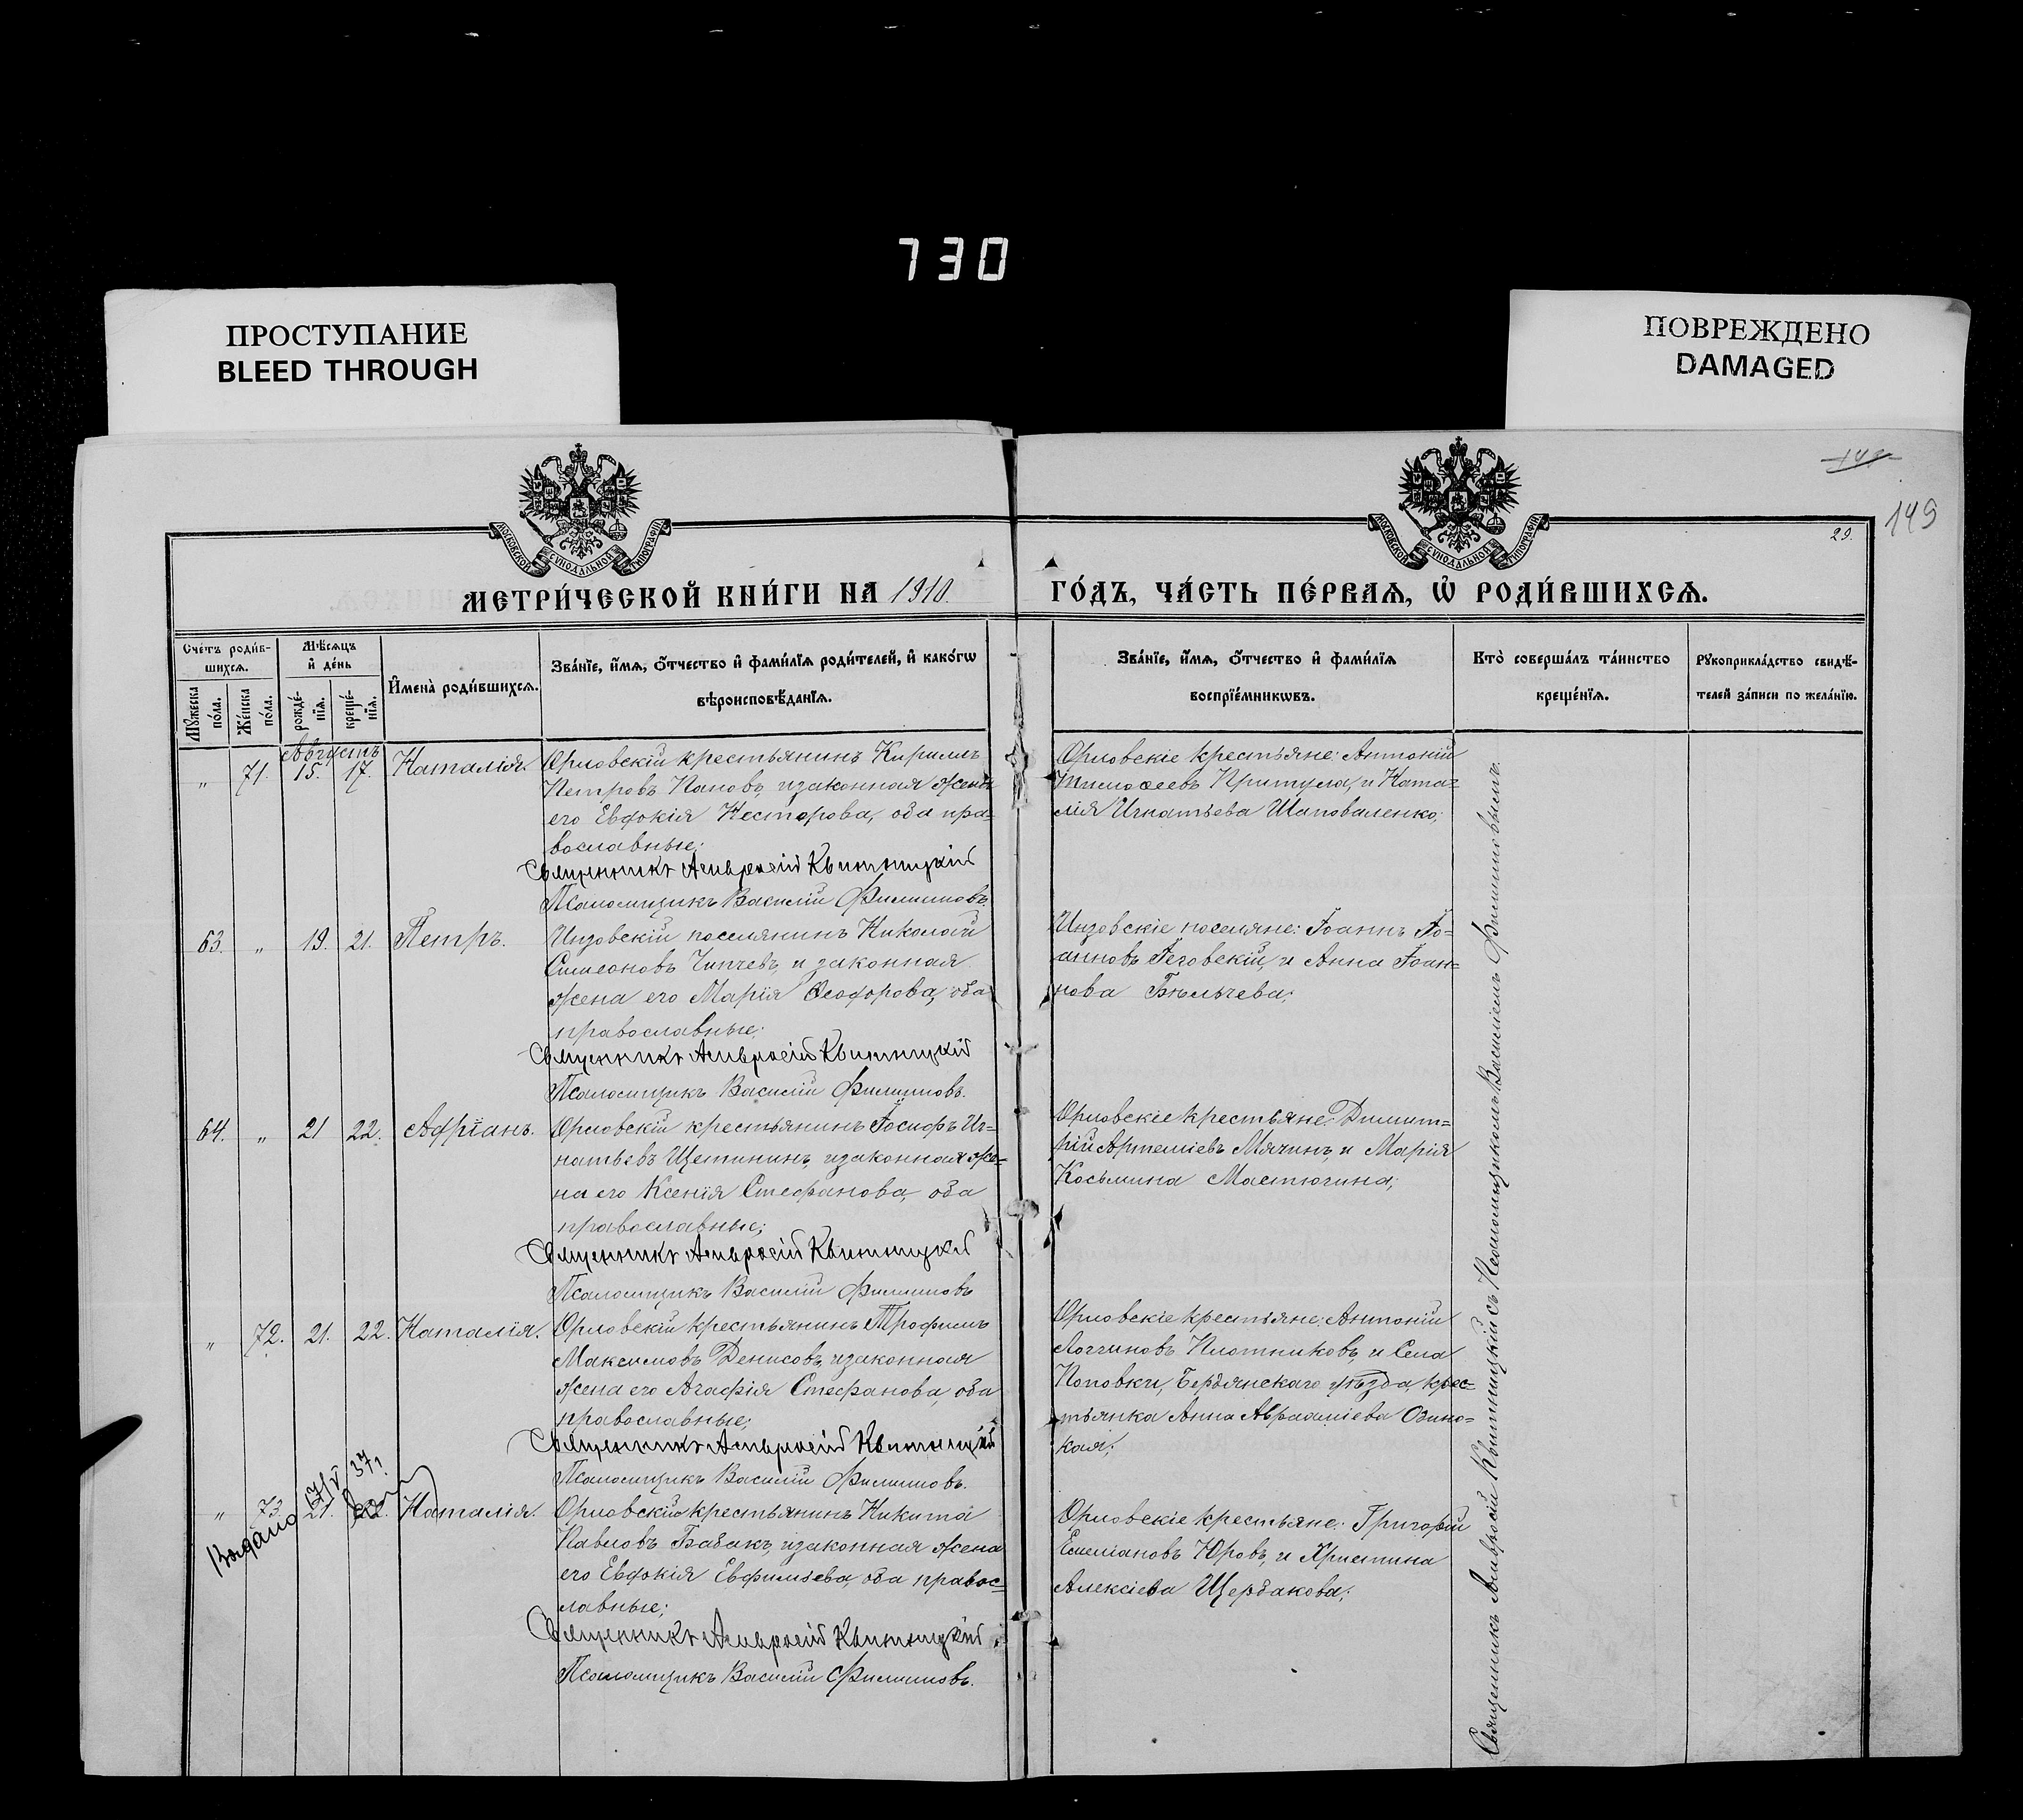 730
ПРОСТУПАНИЕ
BLEED THROUGH
ПОВРЕЖДЕНО
DAMAGED
149
29.
МОСКОВСКОЙ СУНОДАЛЬНОЙ ТИПОГРАФІИ
МОСКОВСКОЙ СУНОДАЛЬНОЙ ТИПОГРАФІИ
МЕТРИ́ЧЕСКОЙ КНИ́ГИ НА 1910. ГО́ДЪ, ЧА́СТЬ ПЕ́РВАѦ, Ѡ҆ РОДИ́ВШИХСѦ.
Сче́тъ роди́в-
шихсѧ.
Мꙋ́жеска по́ла.
Же́нска по́ла.
Мѣ́сѧцъ
и҆ де́нь
рожде́-
нїѧ.
креще́-
нїѧ.
И҆мена̀ роди́вшихсѧ.
Зва́нїе, и҆́мѧ, ѻ҆́тчество и҆ фами́лїѧ роди́телей, и҆ како́гѡ
вѣроисповѣ́данїѧ.
Зва́нїе, и҆́мѧ, ѻ҆́тчество и҆ фами́лїѧ
воспрїе́мникѡвъ.
Кто̀ соверша́лъ та́инство
креще́нїѧ.
Рꙋкоприкла́дство свидѣ́-
телей за́писи по жела́нїю.
Августъ
„ 71. 15. 17. Наталія.
Орловскій крестьянинъ Кириллъ
Петровъ Пановъ, и законная жена
его Евдокія Несторова, оба пра-
вославные;
Священникъ Амвросій Квитницкій
Псаломщикъ Василій Филипповъ.
Орловскіе крестьяне: Антоній
Тимоѳеевъ Притула, и Ната-
лія Игнатьева Шаповаленко;
63. „ 19. 21. Петръ.
Инзовскій поселянинъ Николай
Симеоновъ Чипчевъ, и законная
жена его Марія Ѳеодорова, оба
православные;
Священникъ Амвросій Квитницкій
Псаломщикъ Василій Филипповъ.
Инзовскіе поселяне: Іоаннъ Іо-
анновъ Геговскій, и Анна Іоан-
нова Бѣльчева;
64. „ 21 22. Адріанъ.
Орловскій крестьянинъ Іосифъ Иг-
натьевъ Щетининъ, и законная же-
на его Ксенія Стефанова, оба
православные;
Священникъ Амвросій Квитницкій
Псаломщикъ Василій Филипповъ
Орловскіе крестьяне: Димит-
рій Артеміевъ Мячинъ, и Марія
Косьмина Мастюгина;
„ 72. 21. 22. Наталія.
Орловскій крестьянинъ Трофимъ
Максимовъ Денисовъ, и законная
жена его Агафія Стефанова, оба
православные;
Священникъ Амвросій Квитницкій
Псаломщикъ Василій Филипповъ.
Орловскіе крестьяне: Антоній
Логгиновъ Плотниковъ, и Села
Поповки, Бердянскаго уѣзда, крес-
тьянка Анна Авраміева Одино-
кая;
„ 73. 21. 22. Наталія.
Выдано 17/V 37.
Орловскій крестьянинъ Никита
Павловъ Бабакъ, и законная жена
его Евдокія Евфимьева, оба правос-
лавные;
Священникъ Амвросій Квитницкій
Псаломщикъ Василій Филипповъ.
Орловскіе крестьяне: Григорій
Емеліановъ Юровъ, и Христина
Алексіева Щербакова;
Священникъ Амвросій Квитницкій съ Псаломщикомъ Василіемъ Филипповымъ.